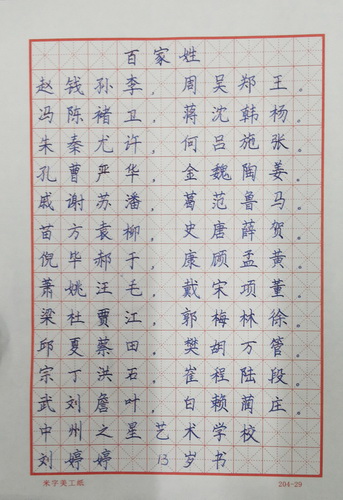 百家姓
赵钱孙李，周吴郑王。
冯陈褚卫，蒋沈韩杨。
朱秦尤许，何吕施张。
孔曹严华，金魏陶姜。
戚谢苏潘，葛范鲁马。
苗方袁柳，史唐薛贺。
倪毕郝于，康顾孟黄。
萧姚汪毛，戴宋项董。
梁杜贾江，郭梅林徐。
邱夏蔡田，樊胡万管。
宗丁洪石，崔程陆段。
武刘詹叶，白赖蔺庄。
中州之星艺术学校
刘婷婷 13岁书
米字美工纸 204-29